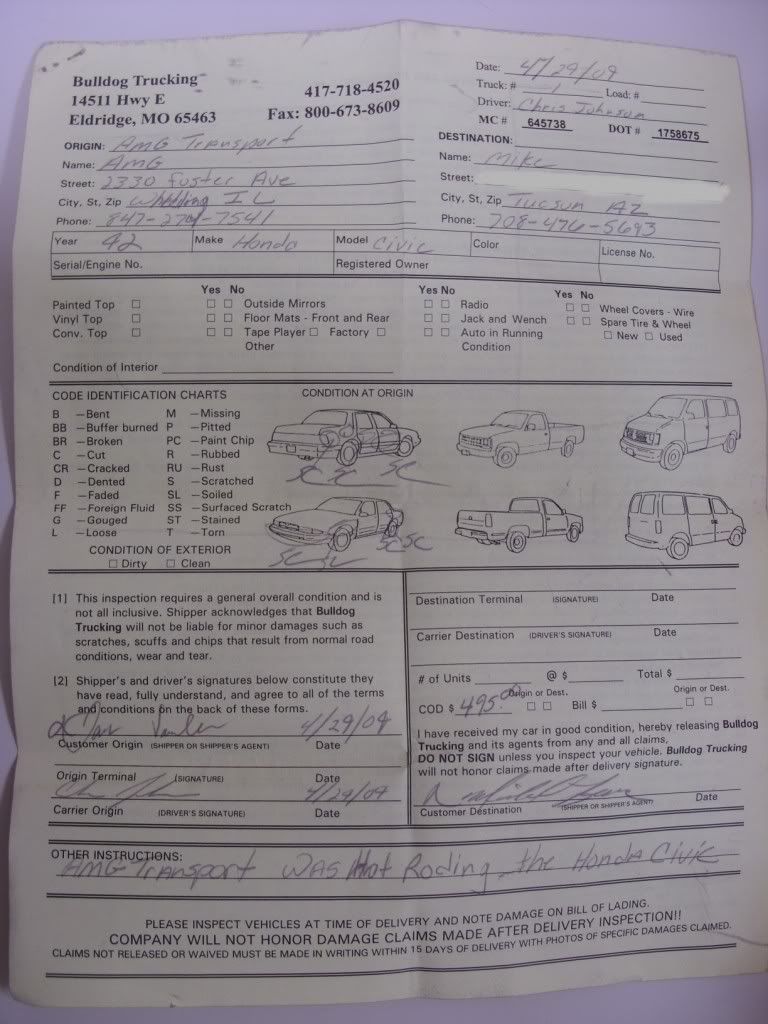 Bulldog Trucking
14511 Hwy E
Eldridge, MO 65463
417-718-4520
Fax: 800-673-8609
Date: 4/29/09
Truck: # 1 Load: #
Driver: Chris Johnson
MC # 645738 DOT # 1758675
ORIGIN: AMG Transport
Name: AMG
Street: 2330 Foster Ave
City, St, Zip Wheeling IL
Phone: 847-274-7541
DESTINATION:
Name: Mike
Street:
City, St, Zip Tucson AZ
Phone: 708-476-5693
Year 92 Make Honda Model Civic Color License No.
Serial/Engine No. Registered Owner
Yes No Yes No Yes No
Painted Top Outside Mirrors Radio Wheel Covers - Wire
Vinyl Top Floor Mats - Front and Rear Jack and Wench Spare Tire & Wheel
Conv. Top Tape Player Factory Auto in Running New Used
Other Condition
Condition of Interior
CODE IDENTIFICATION CHARTS CONDITION AT ORIGIN
B —Bent M —Missing
BB —Buffer burned P —Pitted
BR —Broken PC —Paint Chip
C —Cut R —Rubbed
CR —Cracked RU —Rust
D —Dented S —Scratched
F —Faded SL —Soiled
FF —Foreign Fluid SS —Surfaced Scratch
G —Gouged ST —Stained
L —Loose T —Torn
SC SC SC
SC SC SC SC
CONDITION OF EXTERIOR
Dirty Clean
[1] This inspection requires a general overall condition and is
not all inclusive. Shipper acknowledges that Bulldog
Trucking will not be liable for minor damages such as
scratches, scuffs and chips that result from normal road
conditions, wear and tear.
[2] Shipper's and driver's signatures below constitute they
have read, fully understand, and agree to all of the terms
and conditions on the back of these forms.
4/29/09
Customer Origin (SHIPPER OR SHIPPER'S AGENT) Date
Origin Terminal (SIGNATURE) Date
4/29/09
Carrier Origin (DRIVER'S SIGNATURE) Date
Destination Terminal (SIGNATURE) Date
Carrier Destination (DRIVER'S SIGNATURE) Date
# of Units @ $ Total $
Origin or Dest. Origin or Dest.
COD $ 495.00 Bill $
I have received my car in good condition, hereby releasing Bulldog
Trucking and its agents from any and all claims,
DO NOT SIGN unless you inspect your vehicle. Bulldog Trucking
will not honor claims made after delivery signature.
Customer Destination (SHIPPER OR SHIPPER'S AGENT) Date
OTHER INSTRUCTIONS:
AMG Transport was Hot Roding the Honda Civic
PLEASE INSPECT VEHICLES AT TIME OF DELIVERY AND NOTE DAMAGE ON BILL OF LADING.
COMPANY WILL NOT HONOR DAMAGE CLAIMS MADE AFTER DELIVERY INSPECTION!!
CLAIMS NOT RELEASED OR WAIVED MUST BE MADE IN WRITING WITHIN 15 DAYS OF DELIVERY WITH PHOTOS OF SPECIFIC DAMAGES CLAIMED.